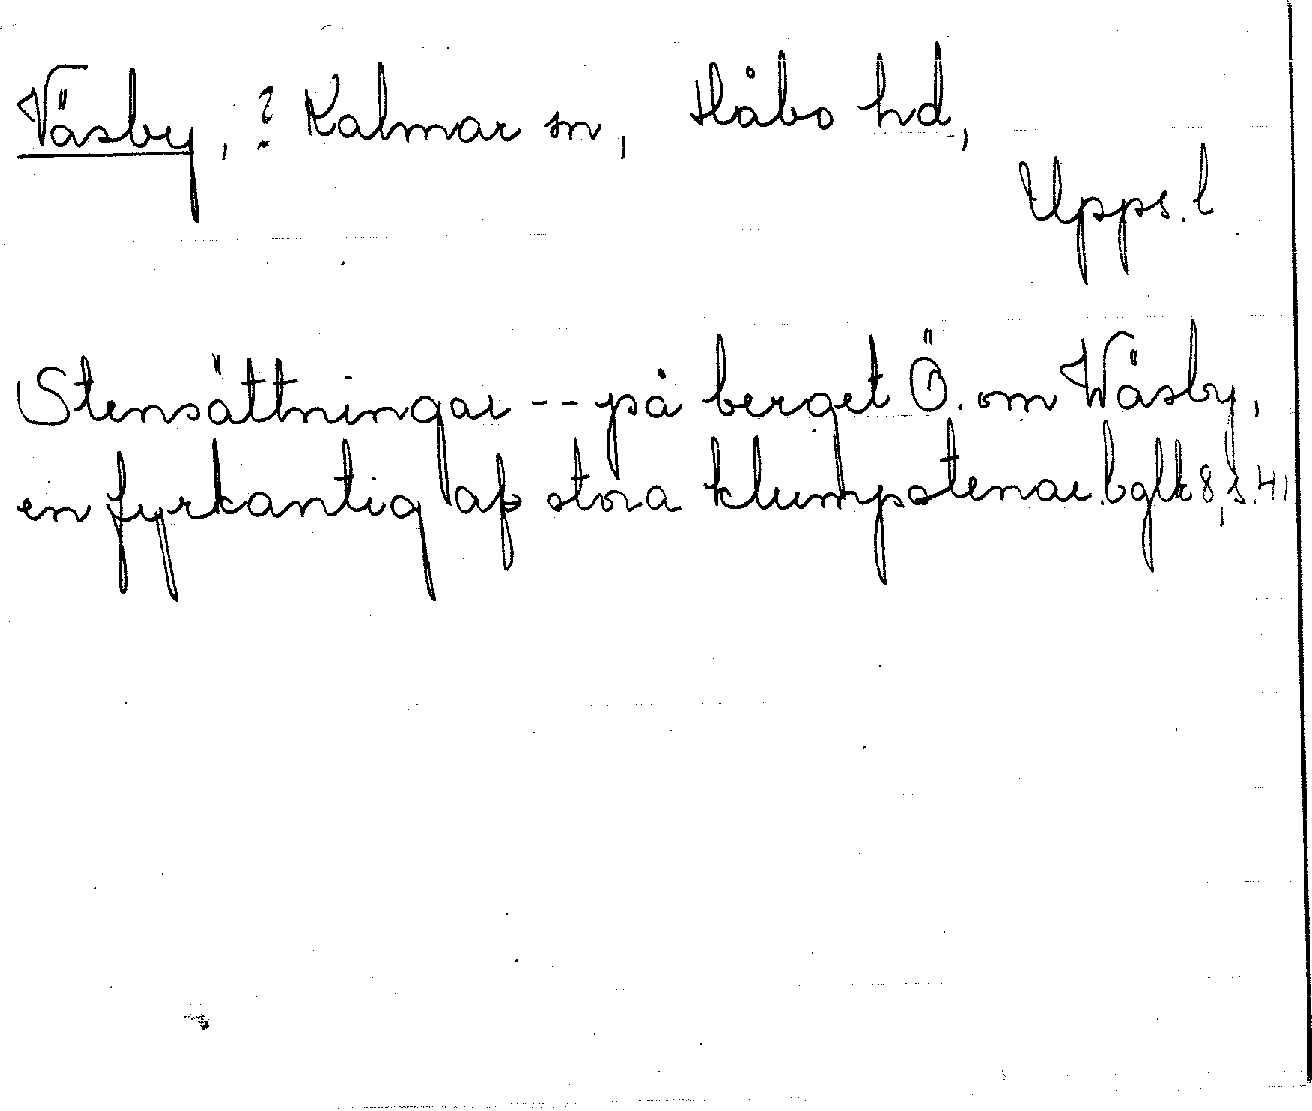 Väsby, ? Kalmar sn, Håbo hd,
Upps. l
Stensättningar -- på berget Ö. om Wäsby,
en fyrkantig af stora klumpstenar. bglk 8, s. 41